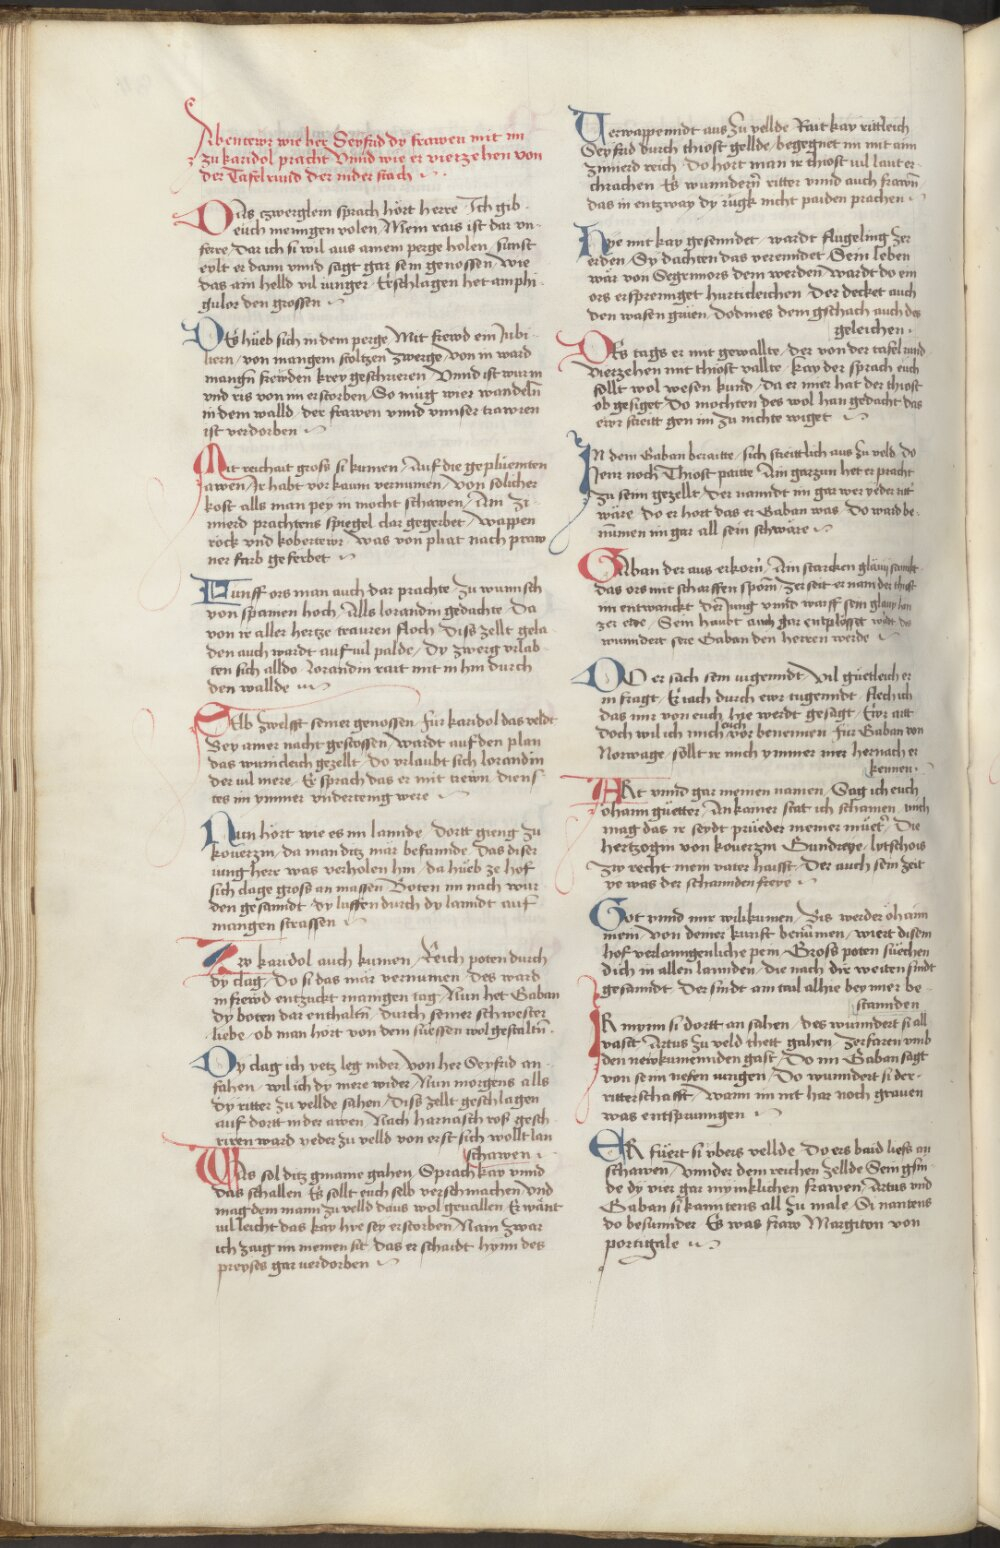 Abentewr wie her Seyfrid dy frawen mit im
zu karidol pracht Vnnd wie er vierzehen von
der Tafelrund der nider stach
Das czwerglein sprach hört herre Ich gib
euch meinigen volen Mein rais ist dar vn
ferre Dar ich si wil aus ainem perge holen sunst
eylt er dann vnnd sagt gar sein genossen wie
das ain helld vil iunger Erschlagen het amphi
gulor den grossen
Des hüeb sich in dem perge Mit frewd ein Jubi
liern von mangem stoltzen zwerge von in ward
mangn frewden krey geschrieren Vnnd ist wurm
vnd ris von im erstorben So müg wier wandeln
in dem walld der frawen vnnd vnnser trawren
ist verdorben
Mit reichait gross si kumen Auf die geplüemten
awen Ir habt vor kaum vernumen von sölicher
kost alls man pey in mocht schawen Ain zi
mierd prachtens spiegel clar gegerbet wappen
röck vnd kobertewr was von pliat nach praw
ner farb geferbet
Fünff ors man auch dar prachte zu wunnsch
von spannen hoch Alls lorandin gedachte Da
von ir aller hertze trauren floch Diss zellt gela
den auch wardt auf vil palde Dy zwerg vrlab
ten sich alldo lorandin rait mit in hin durch
den wallde
Selb zwelfft seiner genossen für karidol das veldt
Bey ainer nacht gestossen wardt auf den plan
das wunicleich gezellt do vrlaubt sich lorandin
der vil mere Er sprach das er mit trewn diens
tes im ymmer vndertenig were
Nun hört wie es im lannde dortt gieng zu
kouerzin da man ditz mär befannde Das diser
iung herr was verholen hin da hüeb ze hof
sich clage gross an massen Boten im nach wur
den gesanndt dy luffen durch dy lanndt auf
mangen strassen
Zw karidol auch kumen Reich poten durch
dy clag Do si das mär vernumen des ward
in frewd entzuckt manigen tag Nun het Gaban
dy boten dar enthaltn durch seiner schwester
liebe ob man hort von dem süessen wol gestaltn
Dy clag ich yetz leg nider Von her Seyfrid an
fahen wil ich dy mere wider Nun morgens alls
dy ritter zu vellde sahen Diss zellt geschlagen
auf dortt in der awen Nach harnasch ross gesch
riren ward yeder zu velld von erst sich wollt lan
schawen
Was sol ditz gmaine gahen Sprach kay vnnd
das schallen Es söllt euch selb verschmachen vnd
mag dem mann zu velld daus wol geuallen Er wänt
vil leicht das kay hie sey erstorben Nain zwar
ich zaig im meinen sit das er schaidt hynn des
preyses gar verdorben
Verwappenndt aus zu vellde Rait kay rittleich
Seyfrid durch thiost gellde begegnet im mit ainr
zimierd reich Do hort man ir thiost vil laut er
chrachen Es wunndern ritter vnnd auch frawn
das in entzway dy rügk nicht paiden prachen
Nye mit kay gesenndet wardt flugeling zer
erden Sy dachten das verenndet Sein leben
wär von Segrimors dem werden wardt do ein
ors erspreniget hurticleichen Der decket auch
den wasen grüen dodines dem gschach auch des
geleichen
Des tags er mit gewallte der von der tafelrund
Vierzehen mit thiost vallte kay der sprach euch
söllt wol wesen kund da er mier hat der thiost
ob gesiget Do mochten des wol han gedacht das
ewr streitt gen im zu nichte wiget
In dem Gaban beraitte sich streittlich aus zu veld do
Jener noch Thiost paitte Ain garzun het er pracht
zu seim gezellt der nanndt im gar wer yeder ritt
wäre do er hort das er Gaban was do ward be
nummen im gar all sein schwäre
Gaban der aus erkorn Ain starcken
das ors mit scharffen sporn zersert er nam der thiost
im entwanckt Der Jung vnnd warff sein
zer erde Sein haubt auch gar entplösset
wunndert sere Gaban den herren werde
Do er sach sein iugenndt Vil güetleich er
in fragt Er iach durch ewr tugenndt flech ich
das mir von euch hie werdt gesagt Ewr artt
doch wil ich mich euch vor benennen für Gaban von
Norwage söllt ir mich ymmer mer hernach er
kennen
Art vnnd gar meinen namen Sag ich euch
öhaim güetter Ankainer stat ich schamen mich
mag das ir seydt prüeder meiner müetr Die
hertzogin von kouerzin Gundreye lytschois
zw recht mein vater haisst Der auch sein zeit
ye was der schannden freye
Got vnnd mir wilikumen Bis werder öhaim
mein von deiner kunft benumen wiert disem
hof verlanngenliche pein Gross poten süechen
dich in allen lannden die nach dir weiten sindt
gesanndt Der sindt ain tail alhie bey mier be
stannden
Ir mynn si dortt an sahen des wunndert si all
vasst Artus zu veld thett gahen zerfaren vmb
den newkumennden gast Do im Gaban sagt
von seim nefen iungen Do wunndert si der
ritterschafft wann im nit har noch grauen
was entsprunngen
Er füert si vbers vellde Do ers baid liess an
schawen Vnnder dem reichen zellde Sein gsin
de dy vier gar mynklichen frawen Artus vnd
Gaban si kanntens all zu male Si nantens
do besunnder Es was fraw Margiton von
portigale